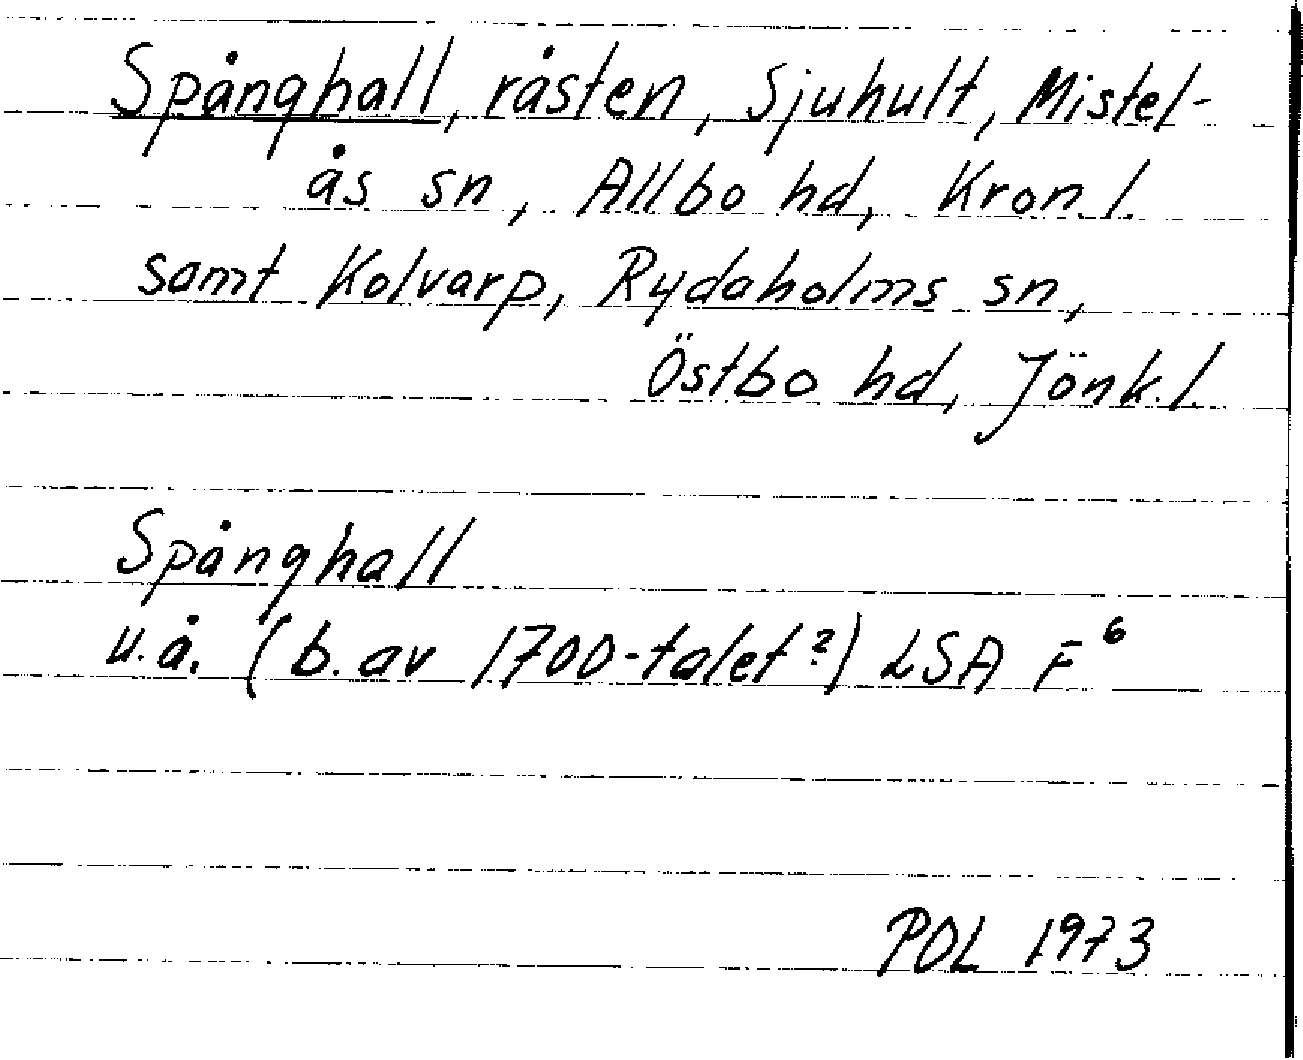 Spånghall, råsten, Sjuhult, Mistel-
ås sn, Allbo hd, Kron. l.
samt Kolvarp, Rydaholms sn,
Östbo hd, Jönk. l.
Spånghall
u.å. (b. av 1700-talet?) LSA F⁶
POL 1973